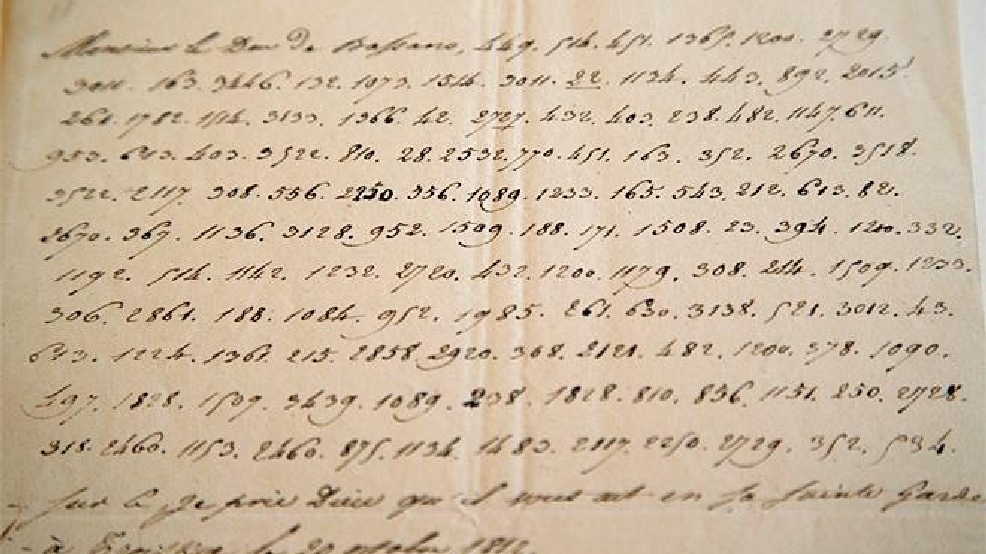 Monsieur le Duc de Bassano, 449. 514. 451. 1365. 1200. 2729.
3011. 163. 3446. 132. 1973. 1514. 3011. 22. 1134. 443. 892. 2015.
261. 1782. 3133. 1366. 42. 2727. 432. 403. 238. 482. 1147. 611.
953. 643. 403. 3522. 810. 28. 2532. 770. 451. 163. 352. 2670. 3518.
3522. 2117. 308. 556. 2250. 356. 1089. 1233. 165. 543. 212. 613. 82.
2670. 367. 1136. 3128. 952. 1509. 188. 171. 1508. 23. 394. 1200. 332.
1192. 514. 1142. 1232. 2720. 432. 1200. 1179. 308. 214. 1509. 1233.
306. 2861. 188. 1084. 952. 1985. 261. 630. 3138. 521. 3012. 43.
643. 1224. 1361. 215. 2858. 2920. 368. 2121. 482. 1200. 378. 1090.
497. 1828. 1507. 3439. 1089. 238. 1828. 810. 836. 1151. 250. 2728.
318. 2460. 1153. 2460. 875. 1134. 1483. 2117. 2250. 2729. 352. 534.
Sur ce je prie Dieu qu'il vous ait en sa Sainte Garde
à le 20 octobre 1812.